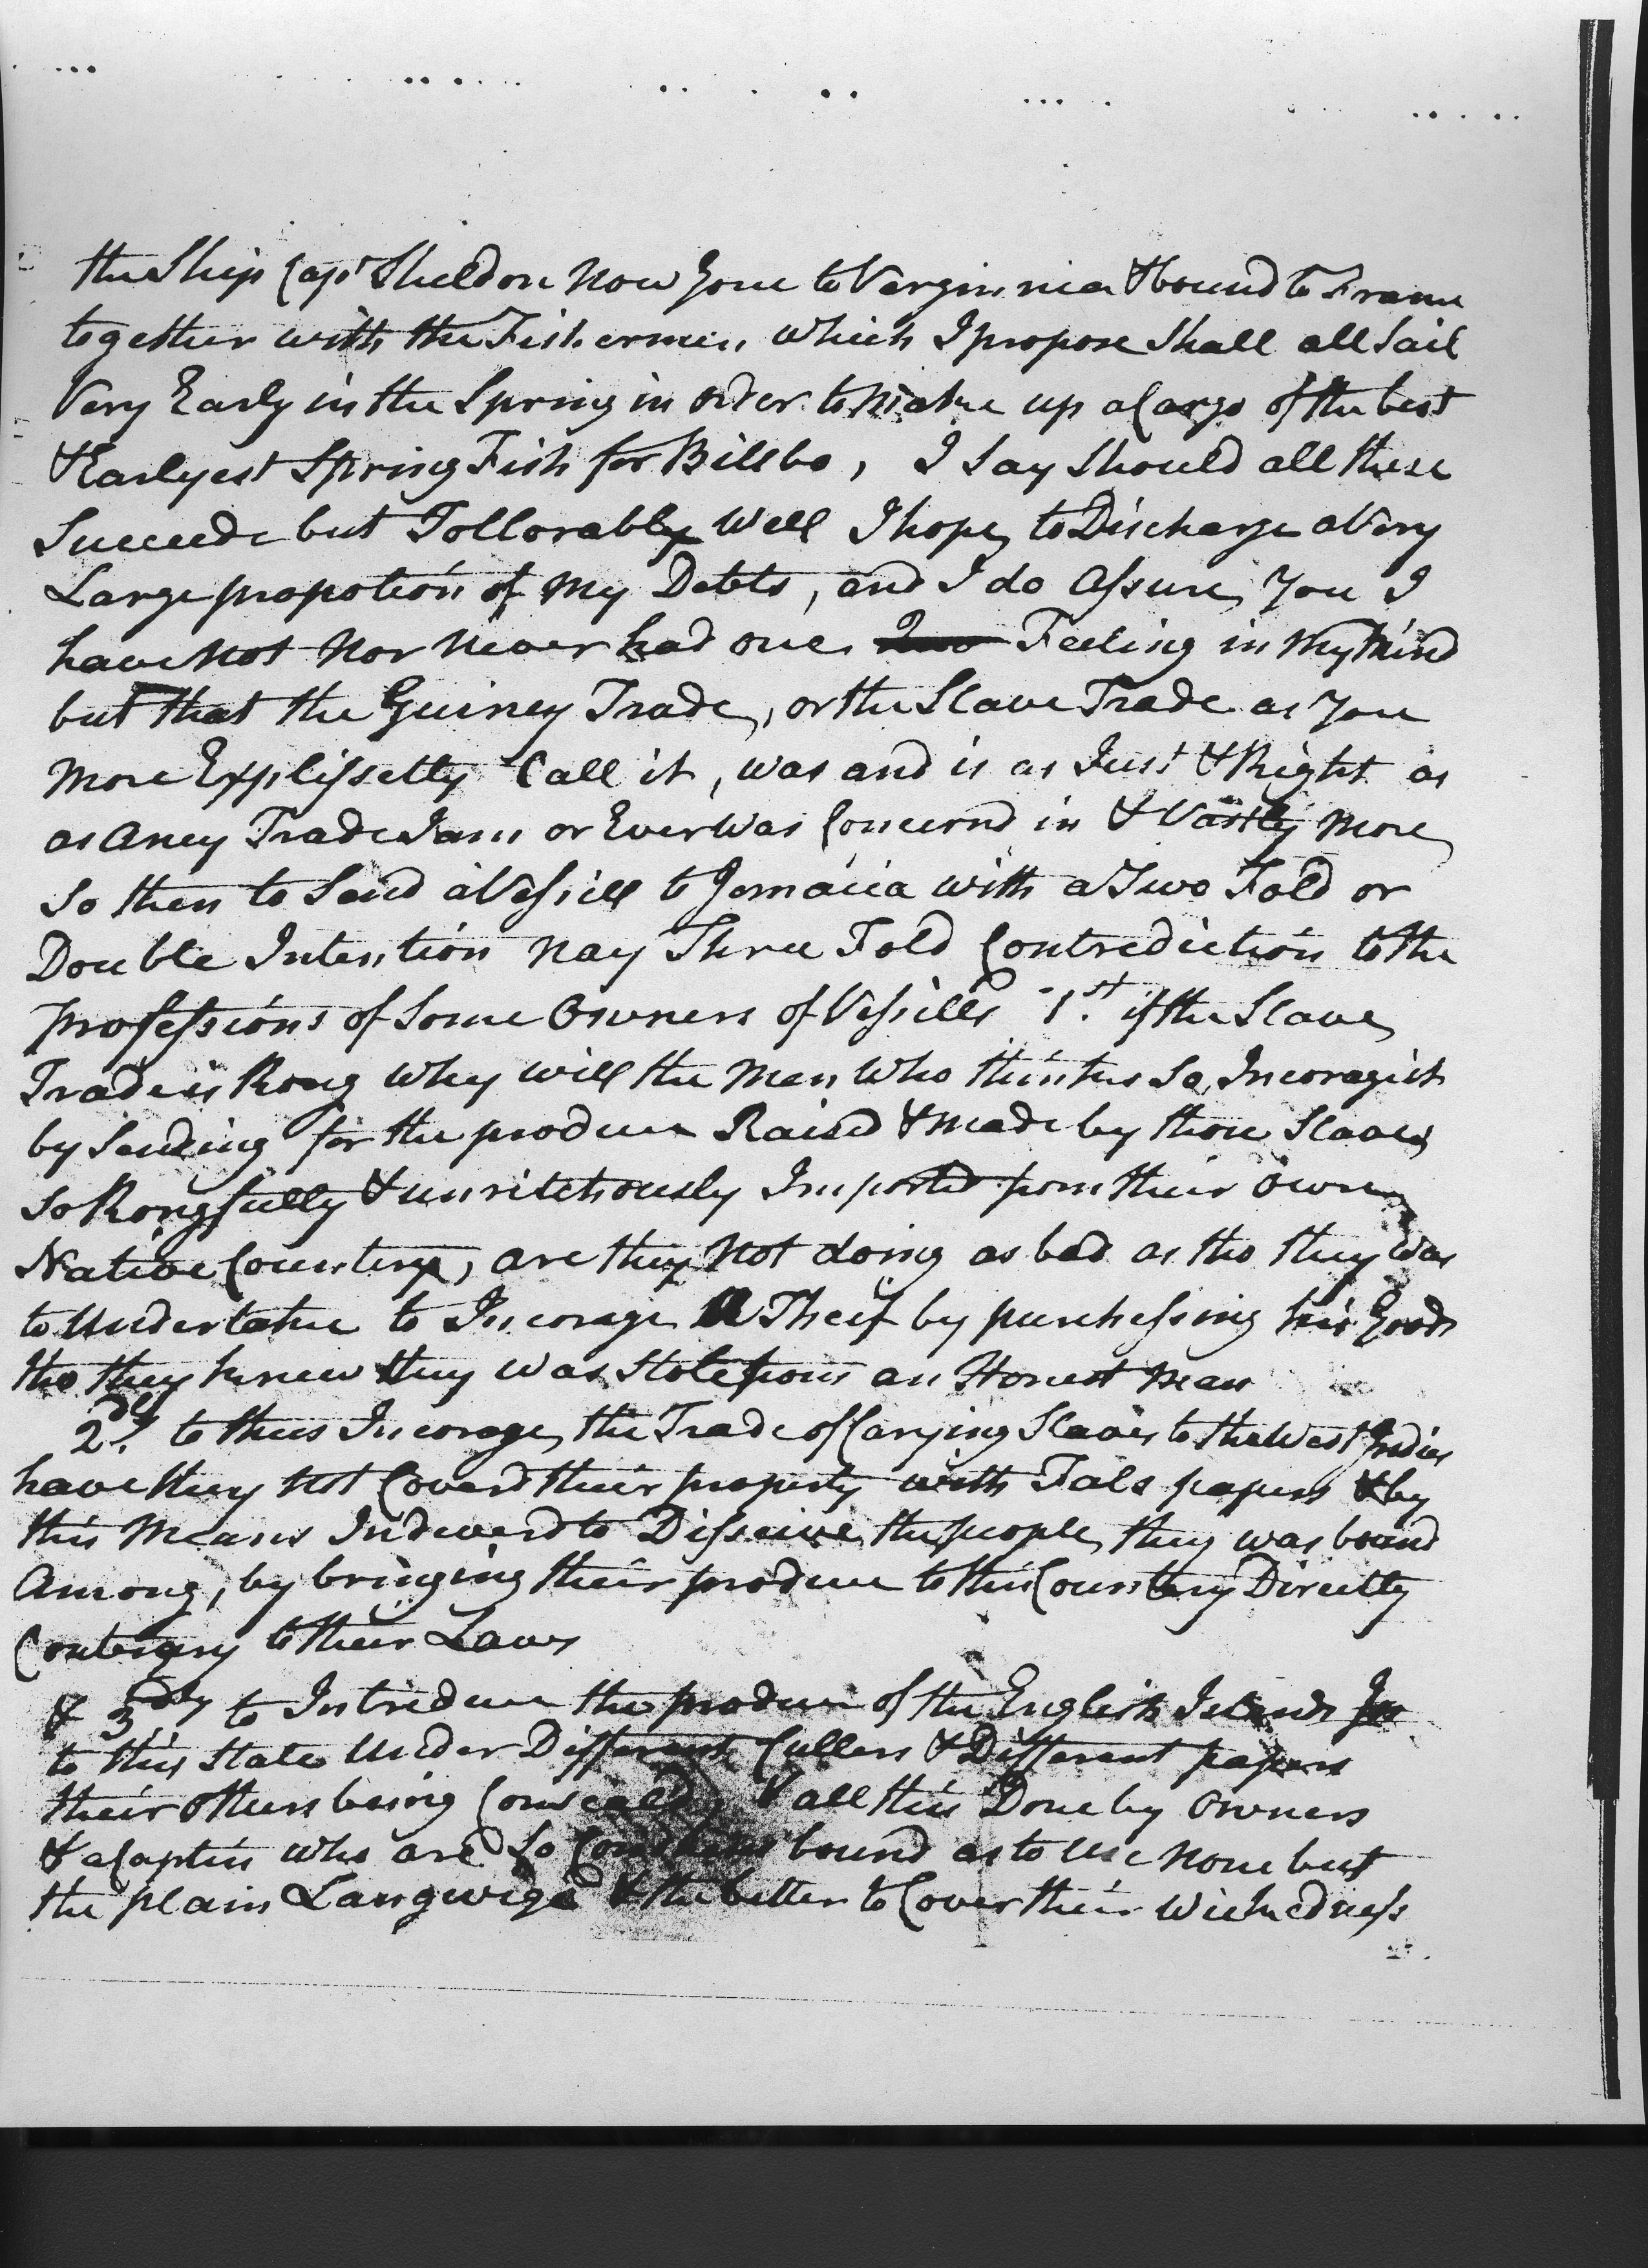 the Ship Capt Sheldon Now gone to Verginnia & bound to France
together with the Fishermen, which I propose Shall all Sail
Very Early in the Spring in order to Make up a Cargo of the best
& Earlyest Spring Fish for Billbo, I Say Should all these
Succeede but Tollorably Well I hope to Discharge a Very
Large propotion of My Debts, and I do Assure You I
have Not Nor Never had one Feeling in My Mind
but that the Guiney Trade, or the Slave Trade as You
More Explissetly Call it, was and is as Just & Right as
as aney Trade I am or Ever Was Concernd in & Vastly More
So then to Send a Vessiell to Jemaica with a Two Fold or
Double Intention Nay Three Fold Contrediction to the
professions of Some Owners of Vessiells 1st if the Slave
Trade is Rong Why will the Men Who thinks So, Incoragit
by Sending for the produce Raised & Made by those Slaves
So Rongfully & unriteously Imported from their Own
Native Countery, are they Not doing as bad as tho they Was
to Undertake to Incorage A Theif by purchessing his Goods
tho they knew they was Stole from an Honest Man
2dly to thus Incorage the Trade of Carying Slaves to the West Indies
have they Not Coverd their property with Fals papers & by
this Means Indeverd to Disseive the people they was bound
Among, by bringing their produce to this Countery Directly
Contrary to their Laws
& 3dly to Intreduce the produce of the English Islands In
to this State Under Different Cullers & Different papers
their others being Conseald, & all this Done by Owners
& a Captin who are So bound as to Use None but
the plain Langwige & the better to Cover their Wickedness